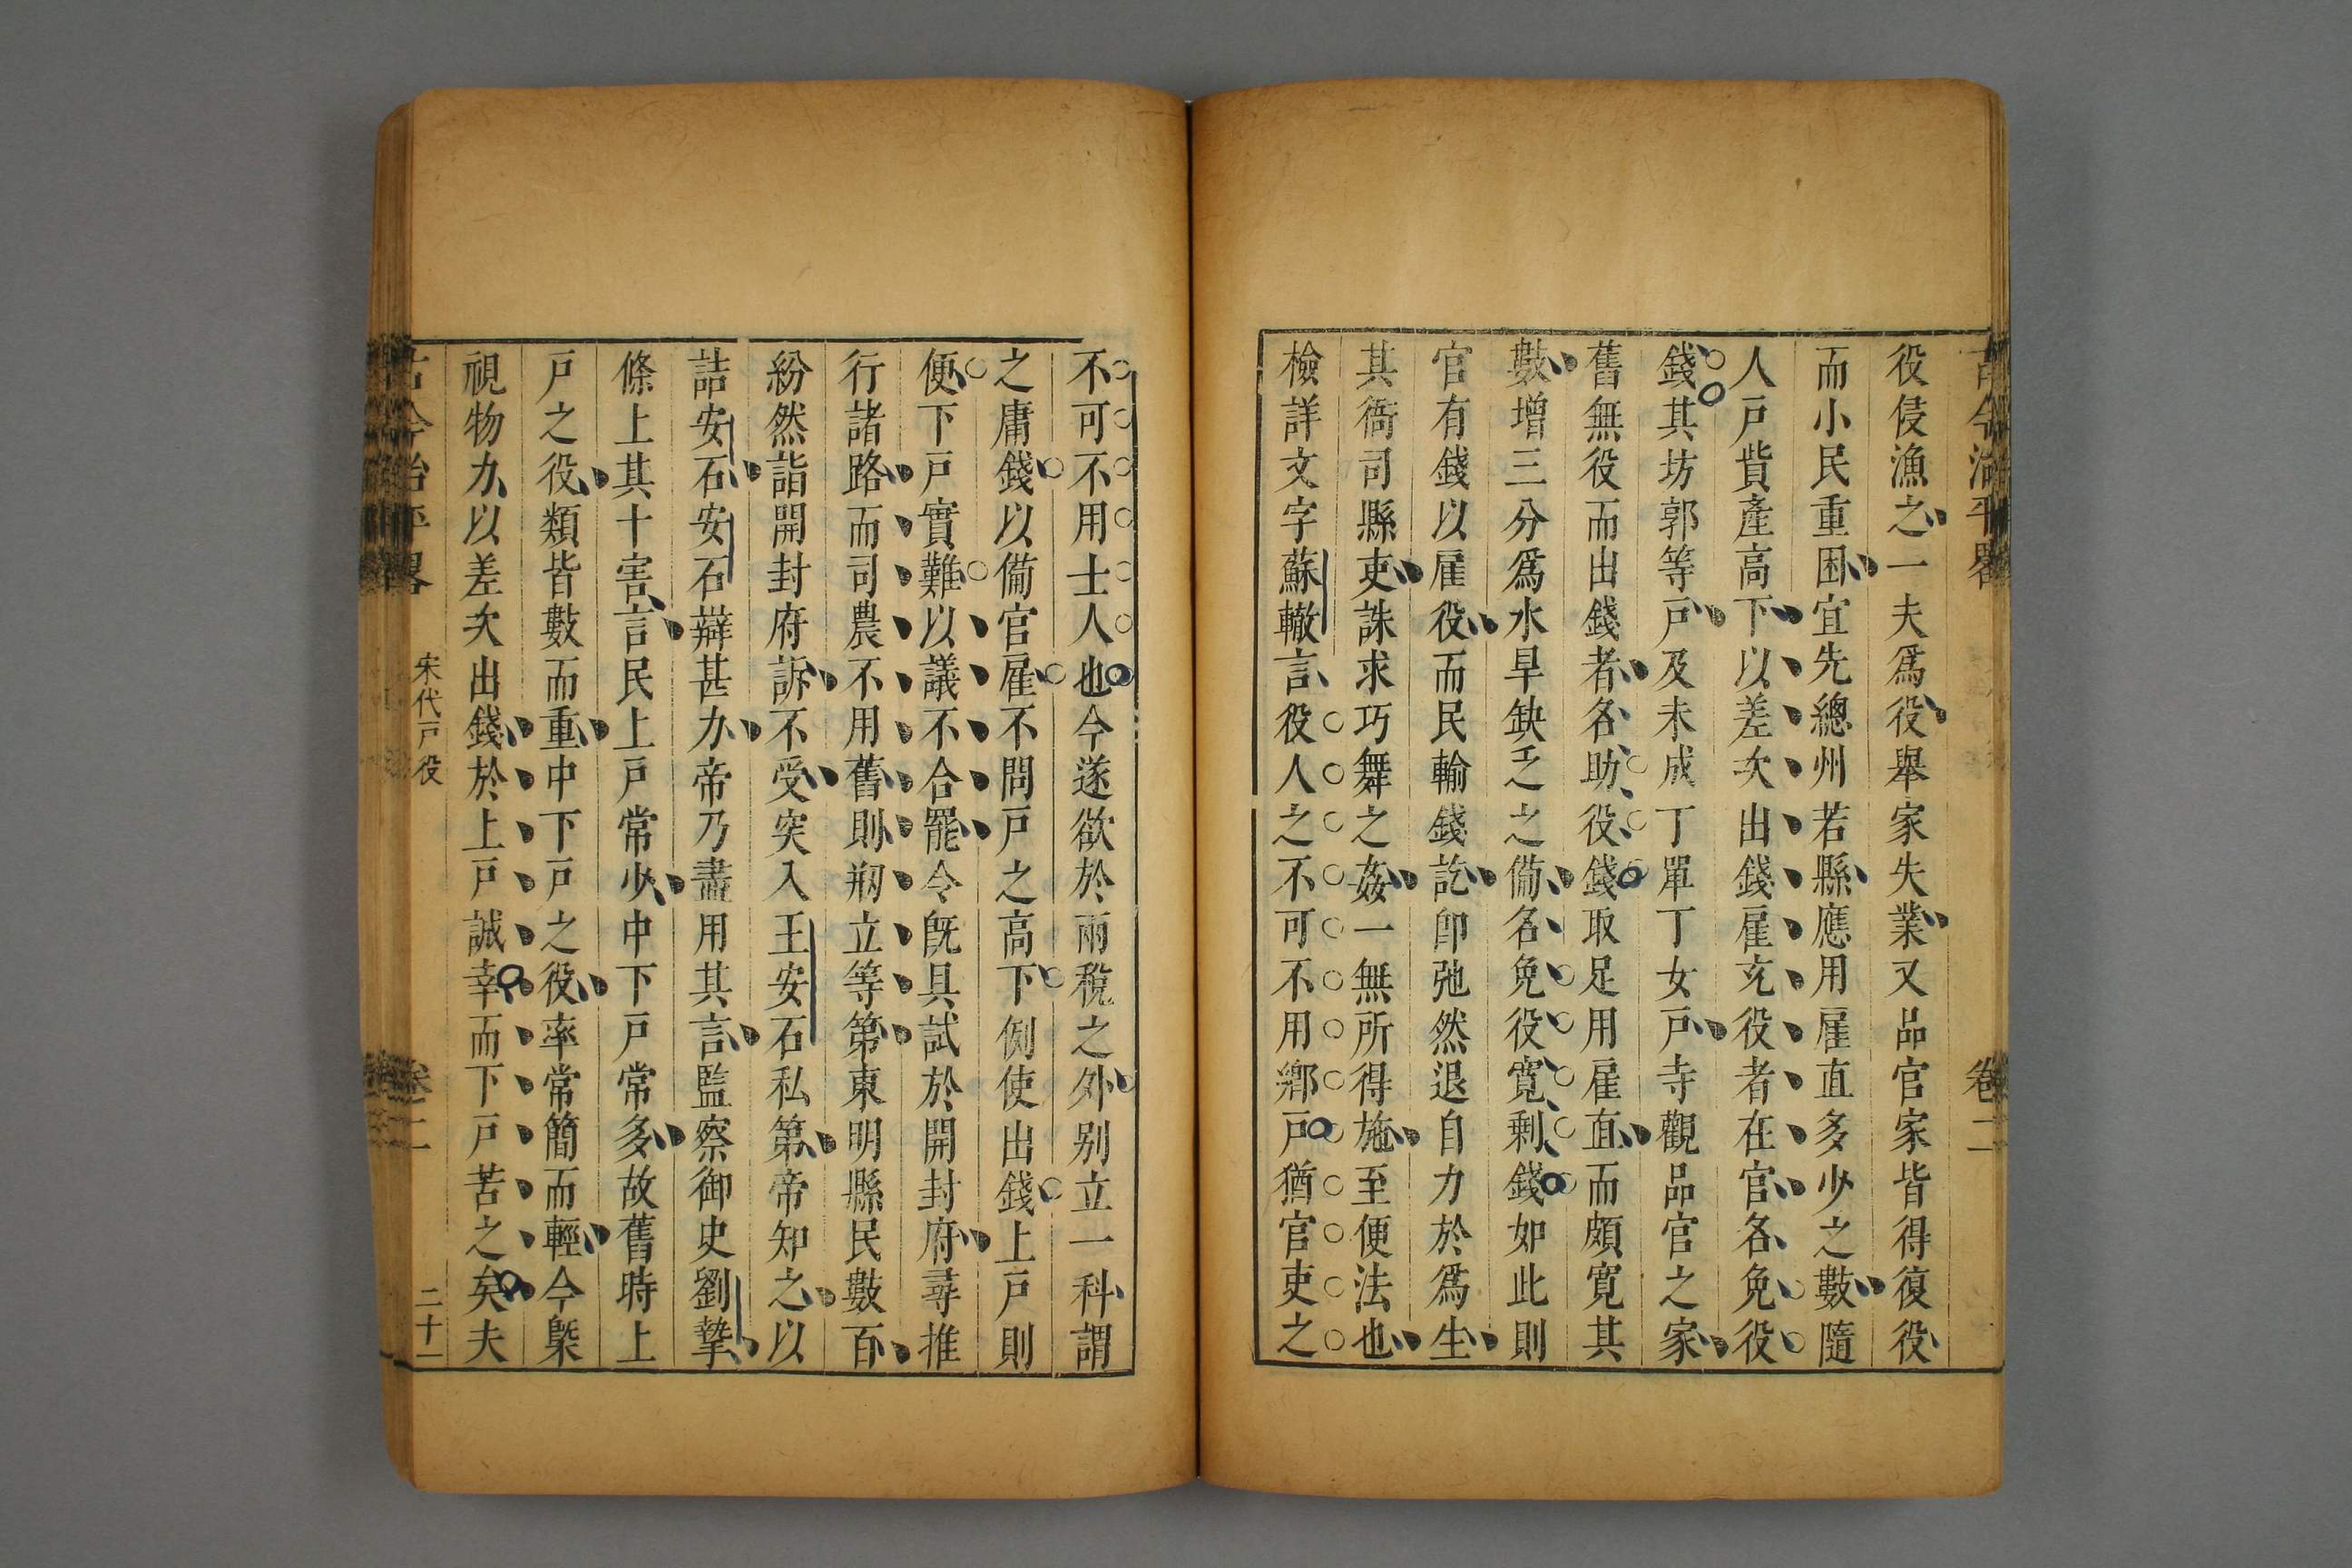 古今治平畧
卷二
役侵漁之一夫爲役舉家失業又品官家皆得復役
而小民重困宜先總州若縣應用雇直多少之數隨
人戸貲產高下以差次出錢雇充役者在官各免役
錢其坊郭等戸及未成丁單丁女戸寺觀品官之家
舊無役而出錢者各助役錢取足用雇直而頗寛其
數增三分爲水旱缺乏之備名免役寛剩錢如此則
官有錢以雇役而民輸錢訖卽弛然退自力於爲生
其衙司縣吏誅求巧舞之姦一無所得施至便法也
檢詳文字蘇轍言役人之不可不用鄉戸猶官吏之
不可不用士人也今遂欲於兩稅之外别立一科謂
之庸錢以備官雇不問戸之高下例使出錢上戸則
便下戸實難以議不合罷令旣具試於開封府尋推
行諸路而司農不用舊則剏立等第東明縣民數百
紛然詣開封府訴不受突入王安石私第帝知之以
詰安石安石辯甚力帝乃盡用其言監察御史劉摯
條上其十害言民上戸常少中下戸常多故舊時上
戸之役類皆數而重中下戸之役率常簡而輕今槩
視物力以差次出錢於上戸誠幸而下戸苦之矣夫
古今治平畧
宋代戸役
卷二
二十一